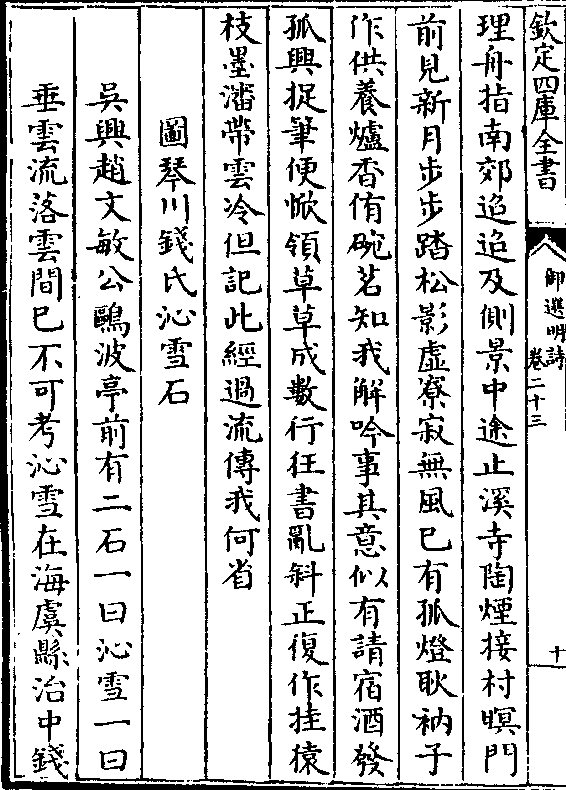 欽定四庫全書
御選明詩
卷二十三
十
理舟指南郊迢迢及側景中途止溪寺陶煙接村暝門
前見新月步步踏松影虛寮寂無風已有孤燈耿衲子
作供養爐香侑碗茗知我解吟事其意似有請宿酒發
孤興捉筆便㨪領草草成數行狂書亂斜正復作挂猿
枝墨瀋帶雲冷但記此經過流傳我何省
圖琴川錢氏沁雪石
吳興趙文敏公鷗波亭前有二石一曰沁雪一曰
垂雲流落雲間已不可考沁雪在海虞縣治中錢